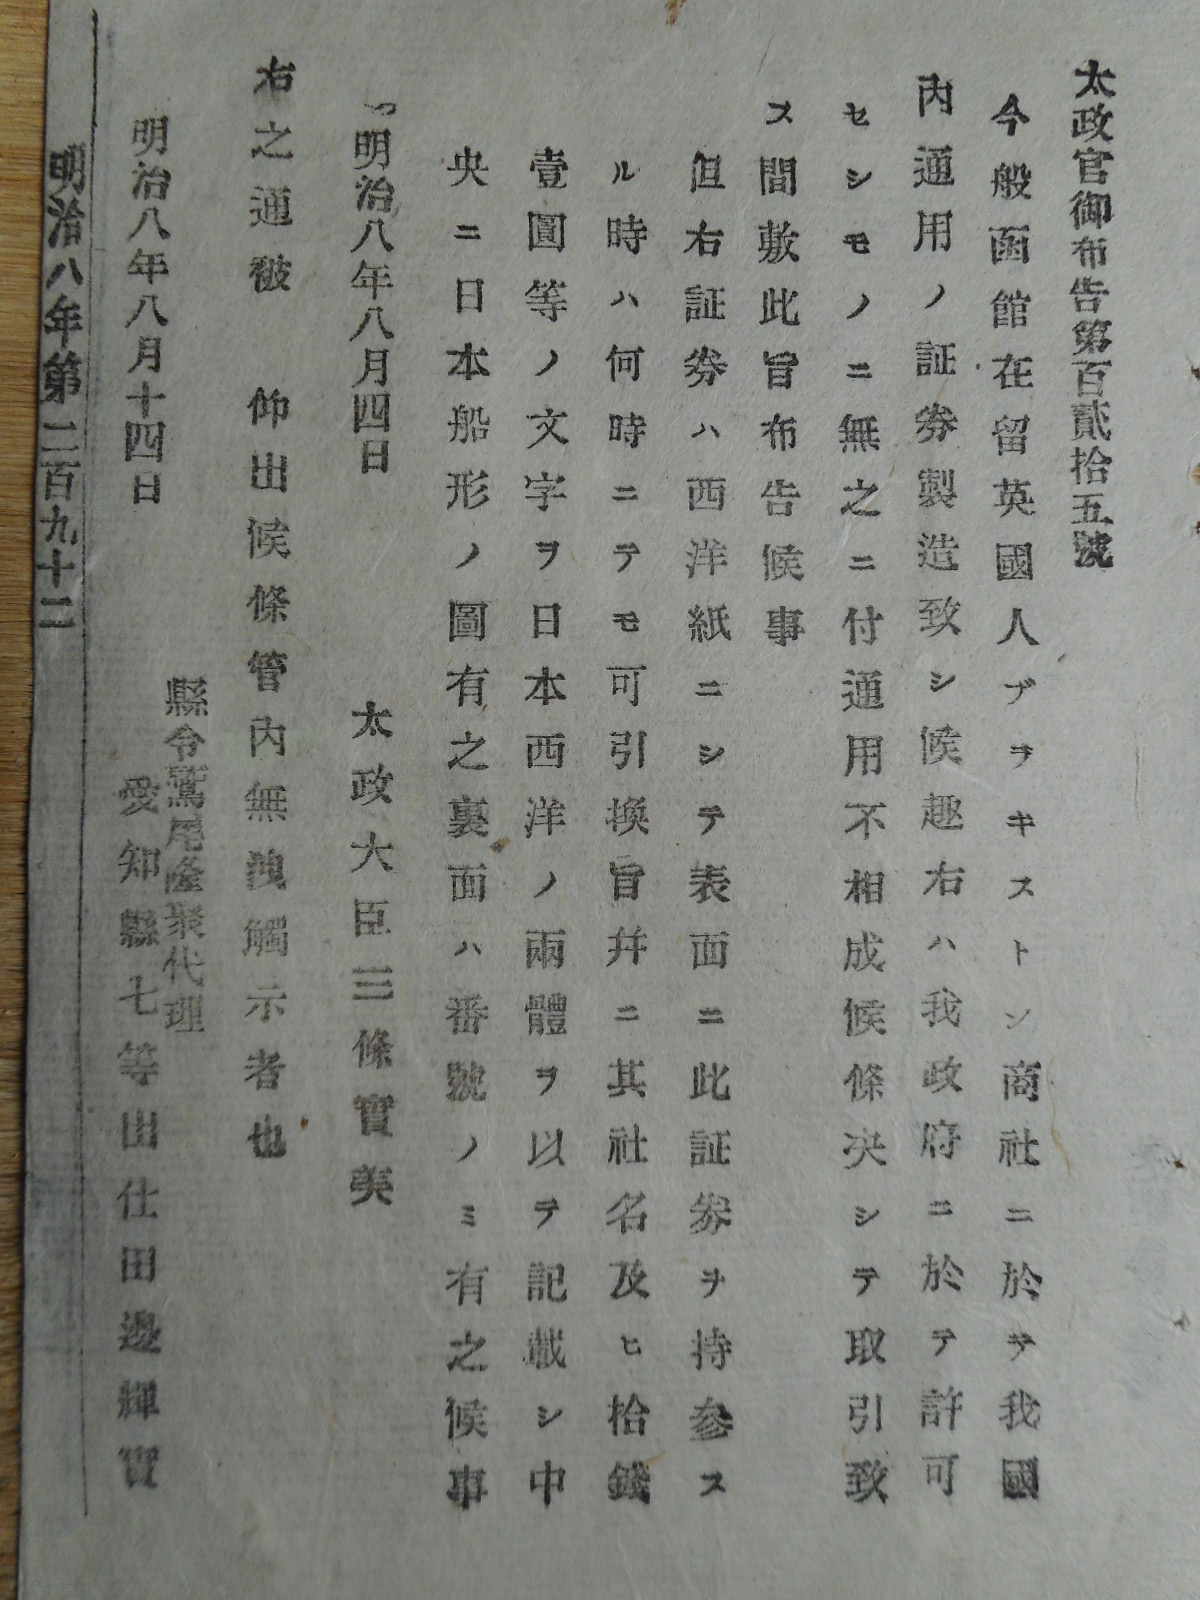 太政官御布告第百貳拾五號
今般函館在留英國人ブラキストン商社ニ於テ我國
內通用ノ証券製造致シ候趣右ハ我政府ニ於テ許可
セシモノニ無之ニ付通用不相成候條決シテ取引致
ス間敷此旨布告候事
但右証券ハ西洋紙ニシテ表面ニ此証券ヲ持參ス
ル時ハ何時ニテモ可引換旨幷ニ其社名及ヒ拾錢
壹圓等ノ文字ヲ日本西洋ノ兩體ヲ以テ記載シ中
央ニ日本船形ノ圖有之裏面ハ番號ノミ有之候事
明治八年八月四日　太政大臣三條實美
右之通被　仰出候條管內無洩觸示者也
縣令鷲尾隆聚代理
明治八年八月十四日　愛知縣七等出仕田邊輝實
明治八年第二百九十二